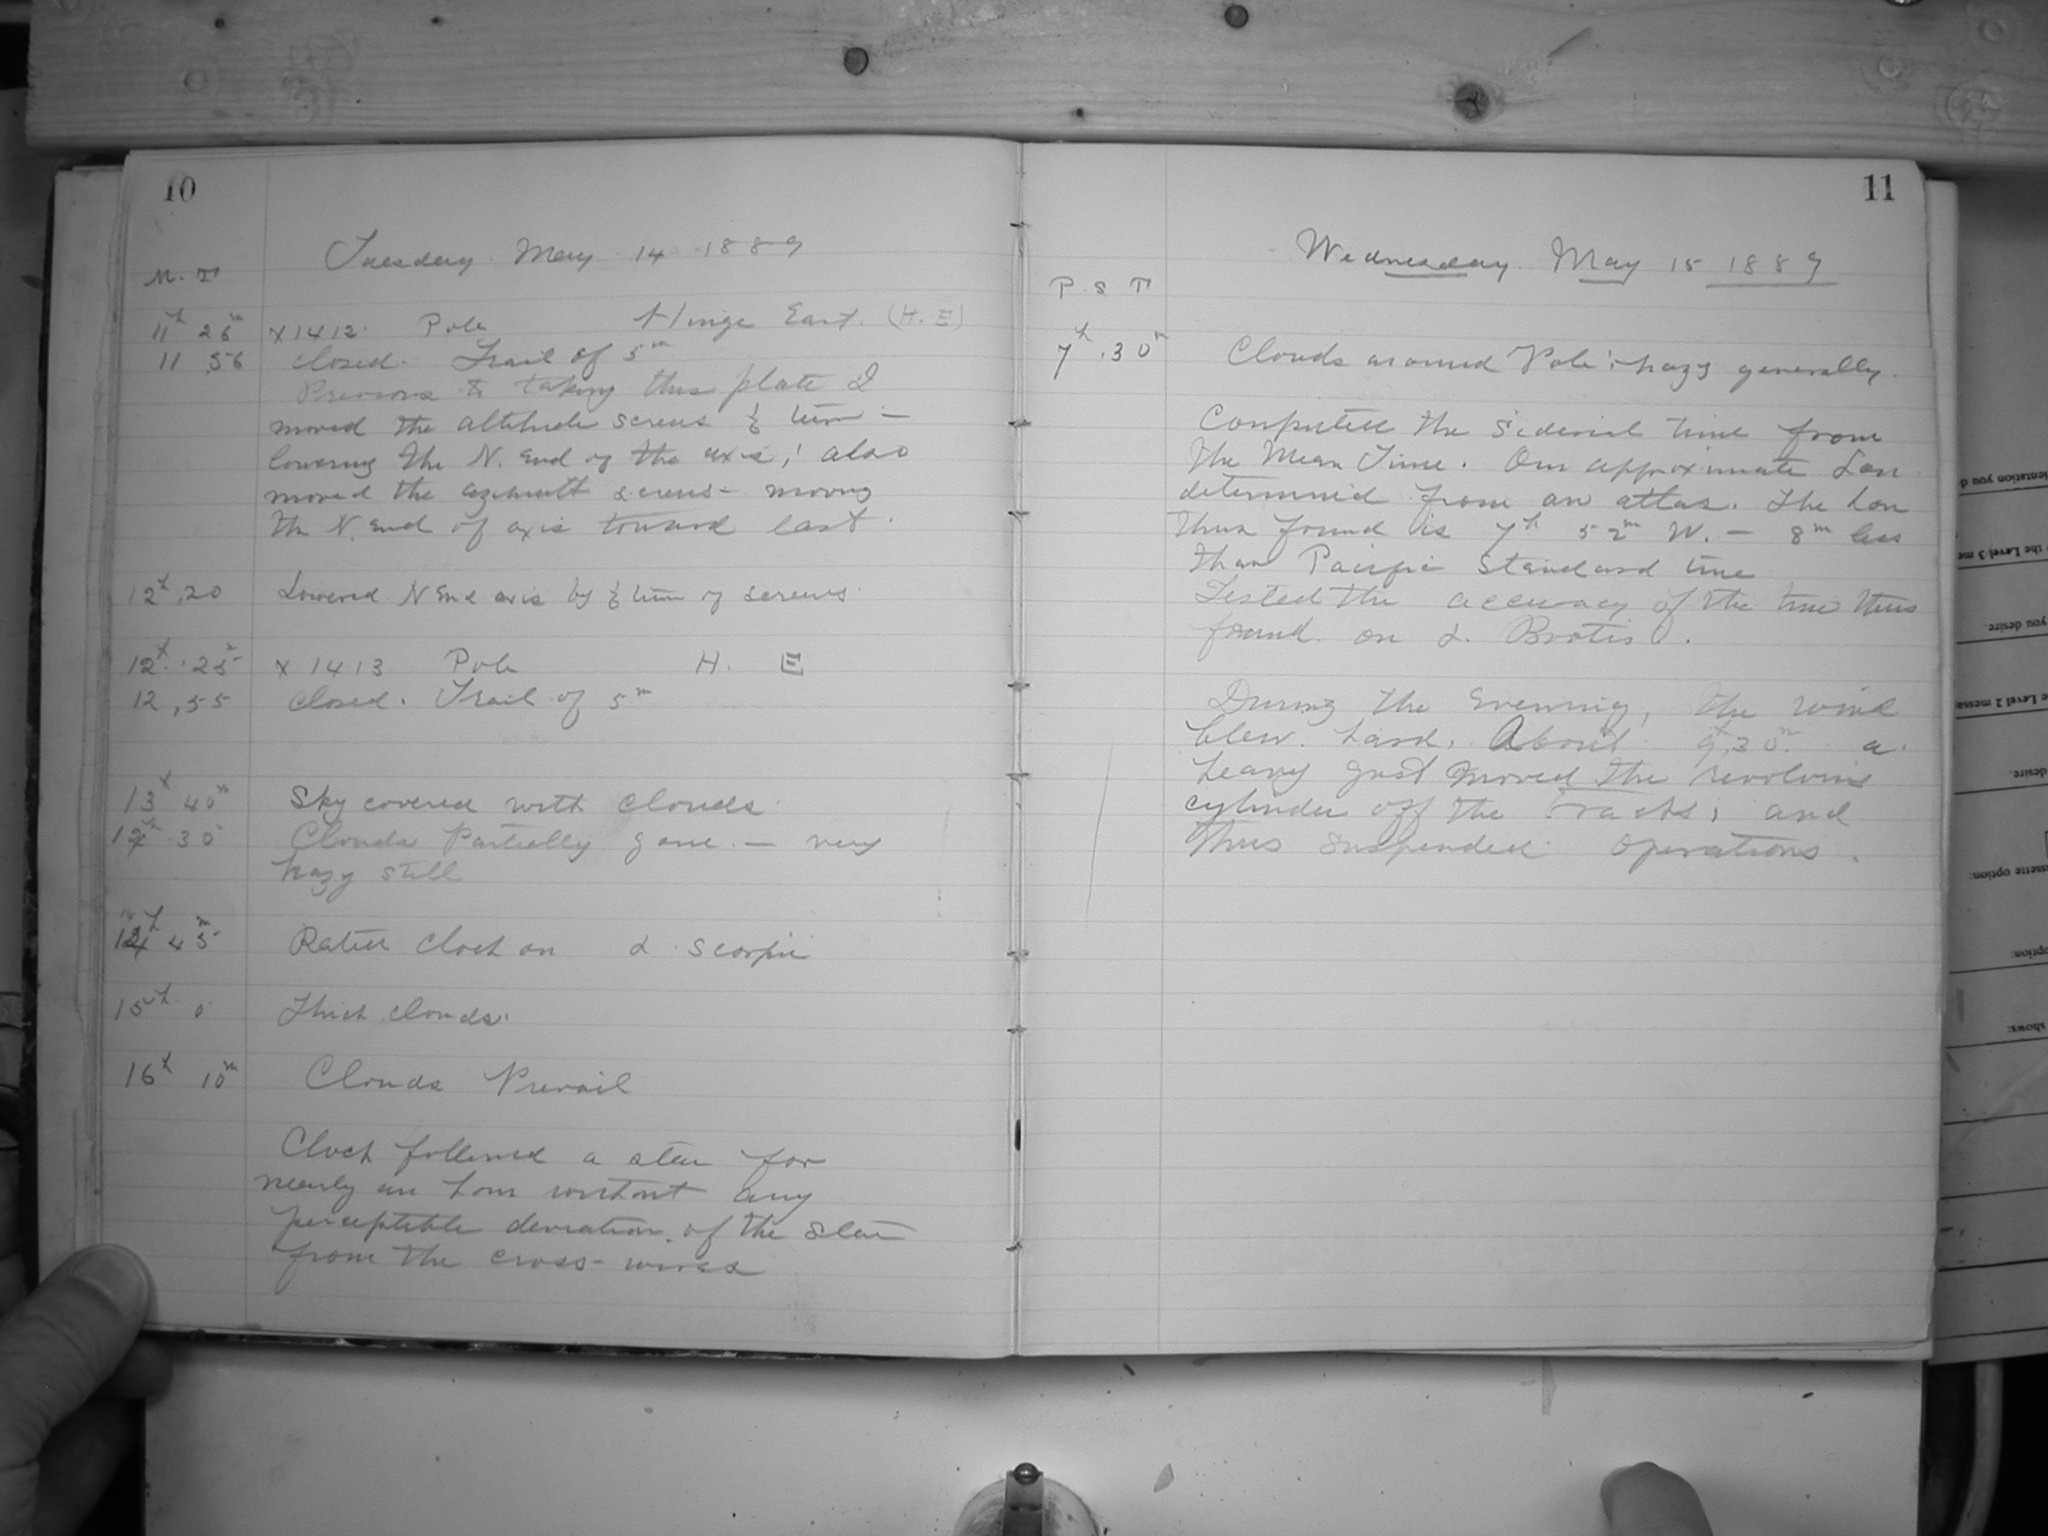 10
Tuesday May 14 1889
M. T
11h 26m X1412. Pole Hinge East. (H. E)
11 56 closed. Trail of 5m
Previous to taking this plate I
moved the altitude screws 1/6 turn —
lowering the N. End of the axis; also
moved the azimuth screws - moving
the N. End of axis toward East.
12h.20 Lowered N End axis by 1/6 turn of screws.
12h. 25m X 1413 Pole H. E
12,55 closed. Trail of 5m
13h 40m Sky covered with clouds.
30 Clouds Partially gone. — very
hazy still
14h 45m Rated Clock on α Scorpii
15h 0 Thick clouds.
16h 10m Clouds Prevail
Clock followed a star for
nearly an hour without any
perceptible deviation of the star
from the cross-wires
11
Wednesday May 15 1889
P S T
7h.30m Clouds around Pole; hazy generally.
Computed the Siderial time from
the Mean Time. Our approximate Lon
determined from an atlas. The Lon
thus found is 7h 52m W. — 8m less
than Pacific Standard time
Tested the accuracy of the time thus
found on α Bootis.
During the Evening, the wind
blew hard. About 9h,30m a
heavy gust moved the revolving
cylinder off the tracks; and
thus suspended operations.